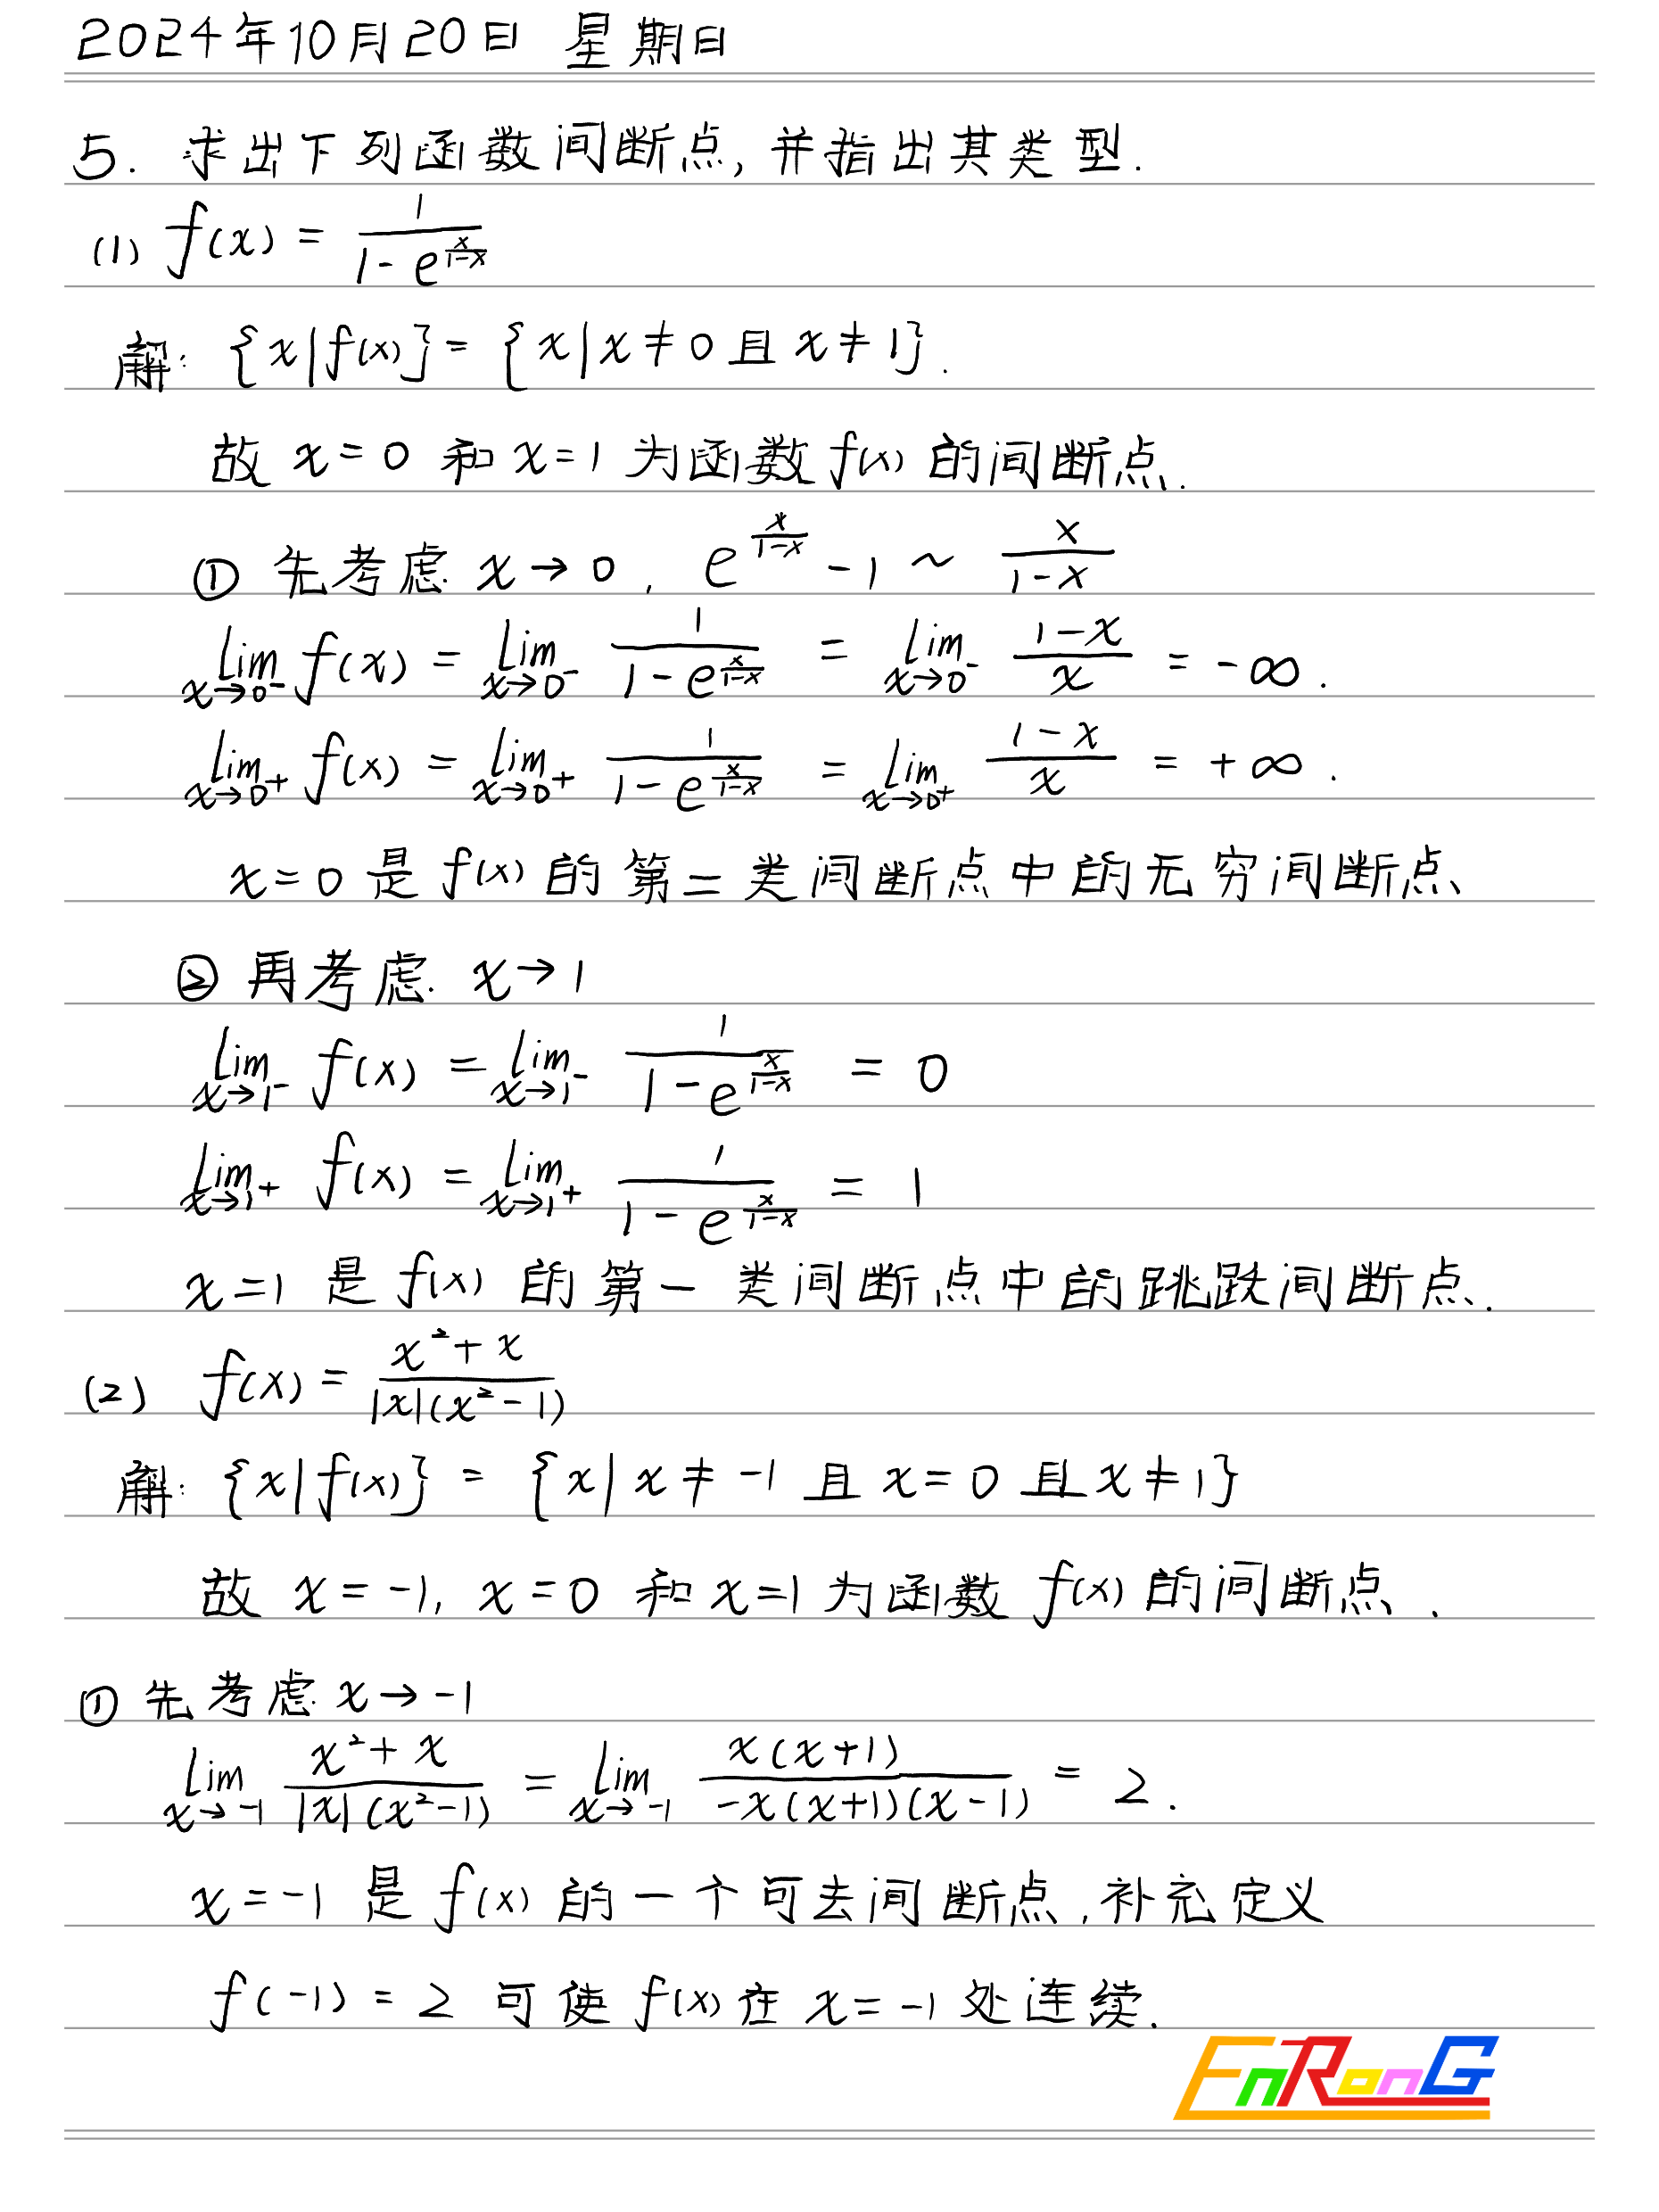 2024年10月20日 星期日
5. 求出下列函数间断点, 并指出其类型.
(1) f(x) = \frac{1}{1-e^{\frac{x}{1-x}}}
解: {x|f(x)} = {x|x≠0 且 x≠1}.
故 x=0 和 x=1 为函数 f(x) 的间断点.
① 先考虑 x→0, e^{\frac{x}{1-x}} -1 ~ \frac{x}{1-x}
\lim_{x→0^-} f(x) = \lim_{x→0^-} \frac{1}{1-e^{\frac{x}{1-x}}} = \lim_{x→0^-} \frac{1-x}{x} = -∞.
\lim_{x→0^+} f(x) = \lim_{x→0^+} \frac{1}{1-e^{\frac{x}{1-x}}} = \lim_{x→0^+} \frac{1-x}{x} = +∞.
x=0 是 f(x) 的第二类间断点中的无穷间断点
② 再考虑 x→1
\lim_{x→1^-} f(x) = \lim_{x→1^-} \frac{1}{1-e^{\frac{x}{1-x}}} = 0
\lim_{x→1^+} f(x) = \lim_{x→1^+} \frac{1}{1-e^{\frac{x}{1-x}}} = 1
x=1 是 f(x) 的第一类间断点中的跳跃间断点.
(2) f(x) = \frac{x^2+x}{|x|(x^2-1)}
解: {x|f(x)} = {x|x≠-1 且 x=0 且 x≠1}
故 x=-1, x=0 和 x=1 为函数 f(x) 的间断点.
① 先考虑 x→-1
\lim_{x→-1} \frac{x^2+x}{|x|(x^2-1)} = \lim_{x→-1} \frac{x(x+1)}{-x(x+1)(x-1)} = 2.
x=-1 是 f(x) 的一个可去间断点, 补充定义
f(-1) = 2 可使 f(x) 在 x=-1 处连续.
EnRonG